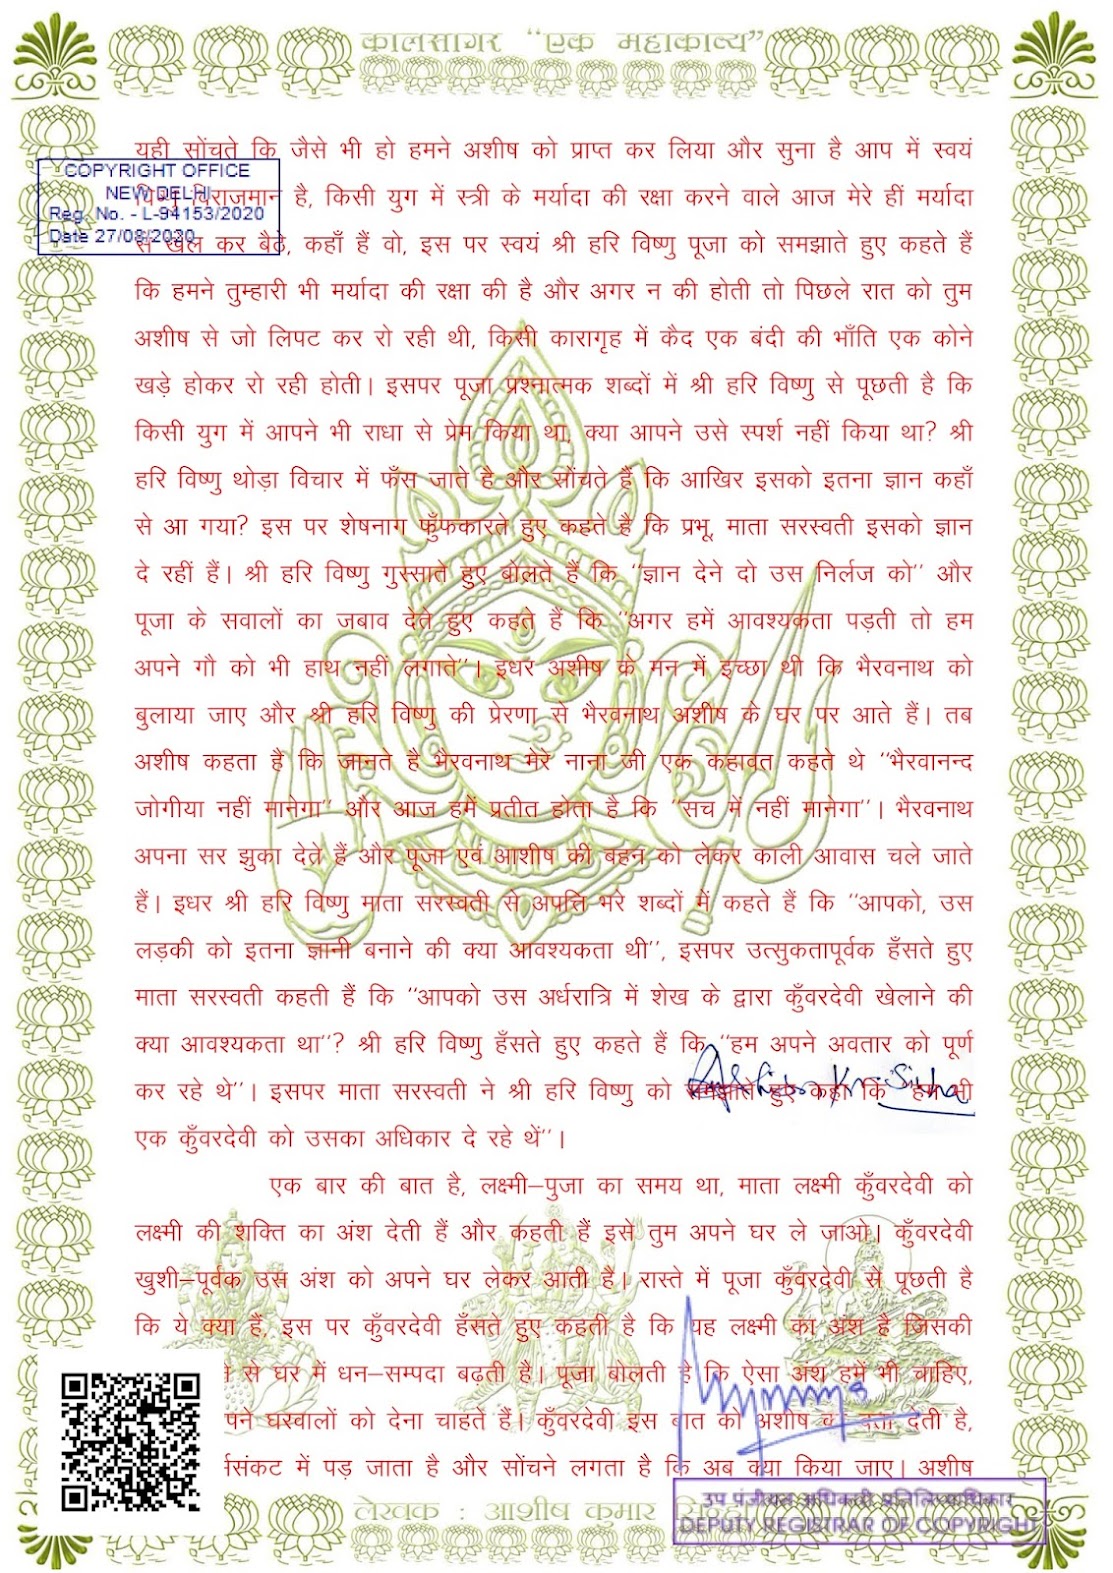 कालसागर "एक महाकाव्य"
यही सोंचते कि जैसे भी हो हमने अशीष को प्राप्त कर लिया और सुना है आप में स्वयं
COPYRIGHT OFFICE
NEW DELHI
Reg. No. - L-94153/2020
Date 27/08/2020
विष्णु विराजमान है, किसी युग में स्त्री के मर्यादा की रक्षा करने वाले आज मेरे हीं मर्यादा
से खेल कर बैठे, कहाँ हैं वो, इस पर स्वयं श्री हरि विष्णु पूजा को समझाते हुए कहते हैं
कि हमने तुम्हारी भी मर्यादा की रक्षा की है और अगर न की होती तो पिछले रात को तुम
अशीष से जो लिपट कर रो रही थी, किसी कारागृह में कैद एक बंदी की भाँति एक कोने
खड़े होकर रो रही होती। इसपर पूजा प्रश्नात्मक शब्दों में श्री हरि विष्णु से पूछती है कि
किसी युग में आपने भी राधा से प्रेम किया था, क्या आपने उसे स्पर्श नहीं किया था? श्री
हरि विष्णु थोड़ा विचार में फँस जाते है और सोंचते हैं कि आखिर इसको इतना ज्ञान कहाँ
से आ गया? इस पर शेषनाग फुँफकारते हुए कहते है कि प्रभू, माता सरस्वती इसको ज्ञान
दे रहीं हैं। श्री हरि विष्णु गुस्साते हुए बोलते हैं कि "ज्ञान देने दो उस निर्लज को" और
पूजा के सवालों का जबाव देते हुए कहते हैं कि "अगर हमें आवश्यकता पड़ती तो हम
अपने गौ को भी हाथ नहीं लगाते"। इधर अशीष के मन में इच्छा थी कि भैरवनाथ को
बुलाया जाए और श्री हरि विष्णु की प्रेरणा से भैरवनाथ अशीष के घर पर आते हैं। तब
अशीष कहता है कि जानते है भैरवनाथ मेरे नाना जी एक कहावत कहते थे "भैरवानन्द
जोगीया नहीं मानेगा" और आज हमें प्रतीत होता है कि "सच में नहीं मानेगा"। भैरवनाथ
अपना सर झुका देते हैं और पूजा एवं आशीष की बहन को लेकर काली आवास चले जाते
हैं। इधर श्री हरि विष्णु माता सरस्वती से अपत्ति भरे शब्दों में कहते हैं कि "आपको, उस
लड़की को इतना ज्ञानी बनाने की क्या आवश्यकता थी", इसपर उत्सुकतापूर्वक हँसते हुए
माता सरस्वती कहती हैं कि "आपको उस अर्धरात्रि में शेख के द्वारा कुँवरदेवी खेलाने की
क्या आवश्यकता था"? श्री हरि विष्णु हँसते हुए कहते हैं कि "हम अपने अवतार को पूर्ण
कर रहे थे"। इसपर माता सरस्वती ने श्री हरि विष्णु को समझाते हुए कहा कि "हम भी
एक कुँवरदेवी को उसका अधिकार दे रहे थें"।
एक बार की बात है, लक्ष्मी–पुजा का समय था, माता लक्ष्मी कुँवरदेवी को
लक्ष्मी की शक्ति का अंश देती हैं और कहती हैं इसे तुम अपने घर ले जाओ। कुँवरदेवी
खुशी–पूर्वक उस अंश को अपने घर लेकर आती है। रास्ते में पूजा कुँवरदेवी से पूछती है
कि ये क्या हैं, इस पर कुँवरदेवी हँसते हुए कहती है कि यह लक्ष्मी का अंश है जिसकी
से घर में धन–सम्पदा बढ़ती है। पूजा बोलती है कि ऐसा अंश हमें भी चाहिए,
घरवालों को देना चाहते हैं। कुँवरदेवी इस बात को अशीष देती है,
में पड़ जाता है और सोंचने लगता है कि अब क्या किया जाए। अशीष
लेखक : आशीष कुमार
उप पंजीयक अधिकारी प्रतिलिप्यधिकार
DEPUTY REGISTRAR OF COPYRIGHT